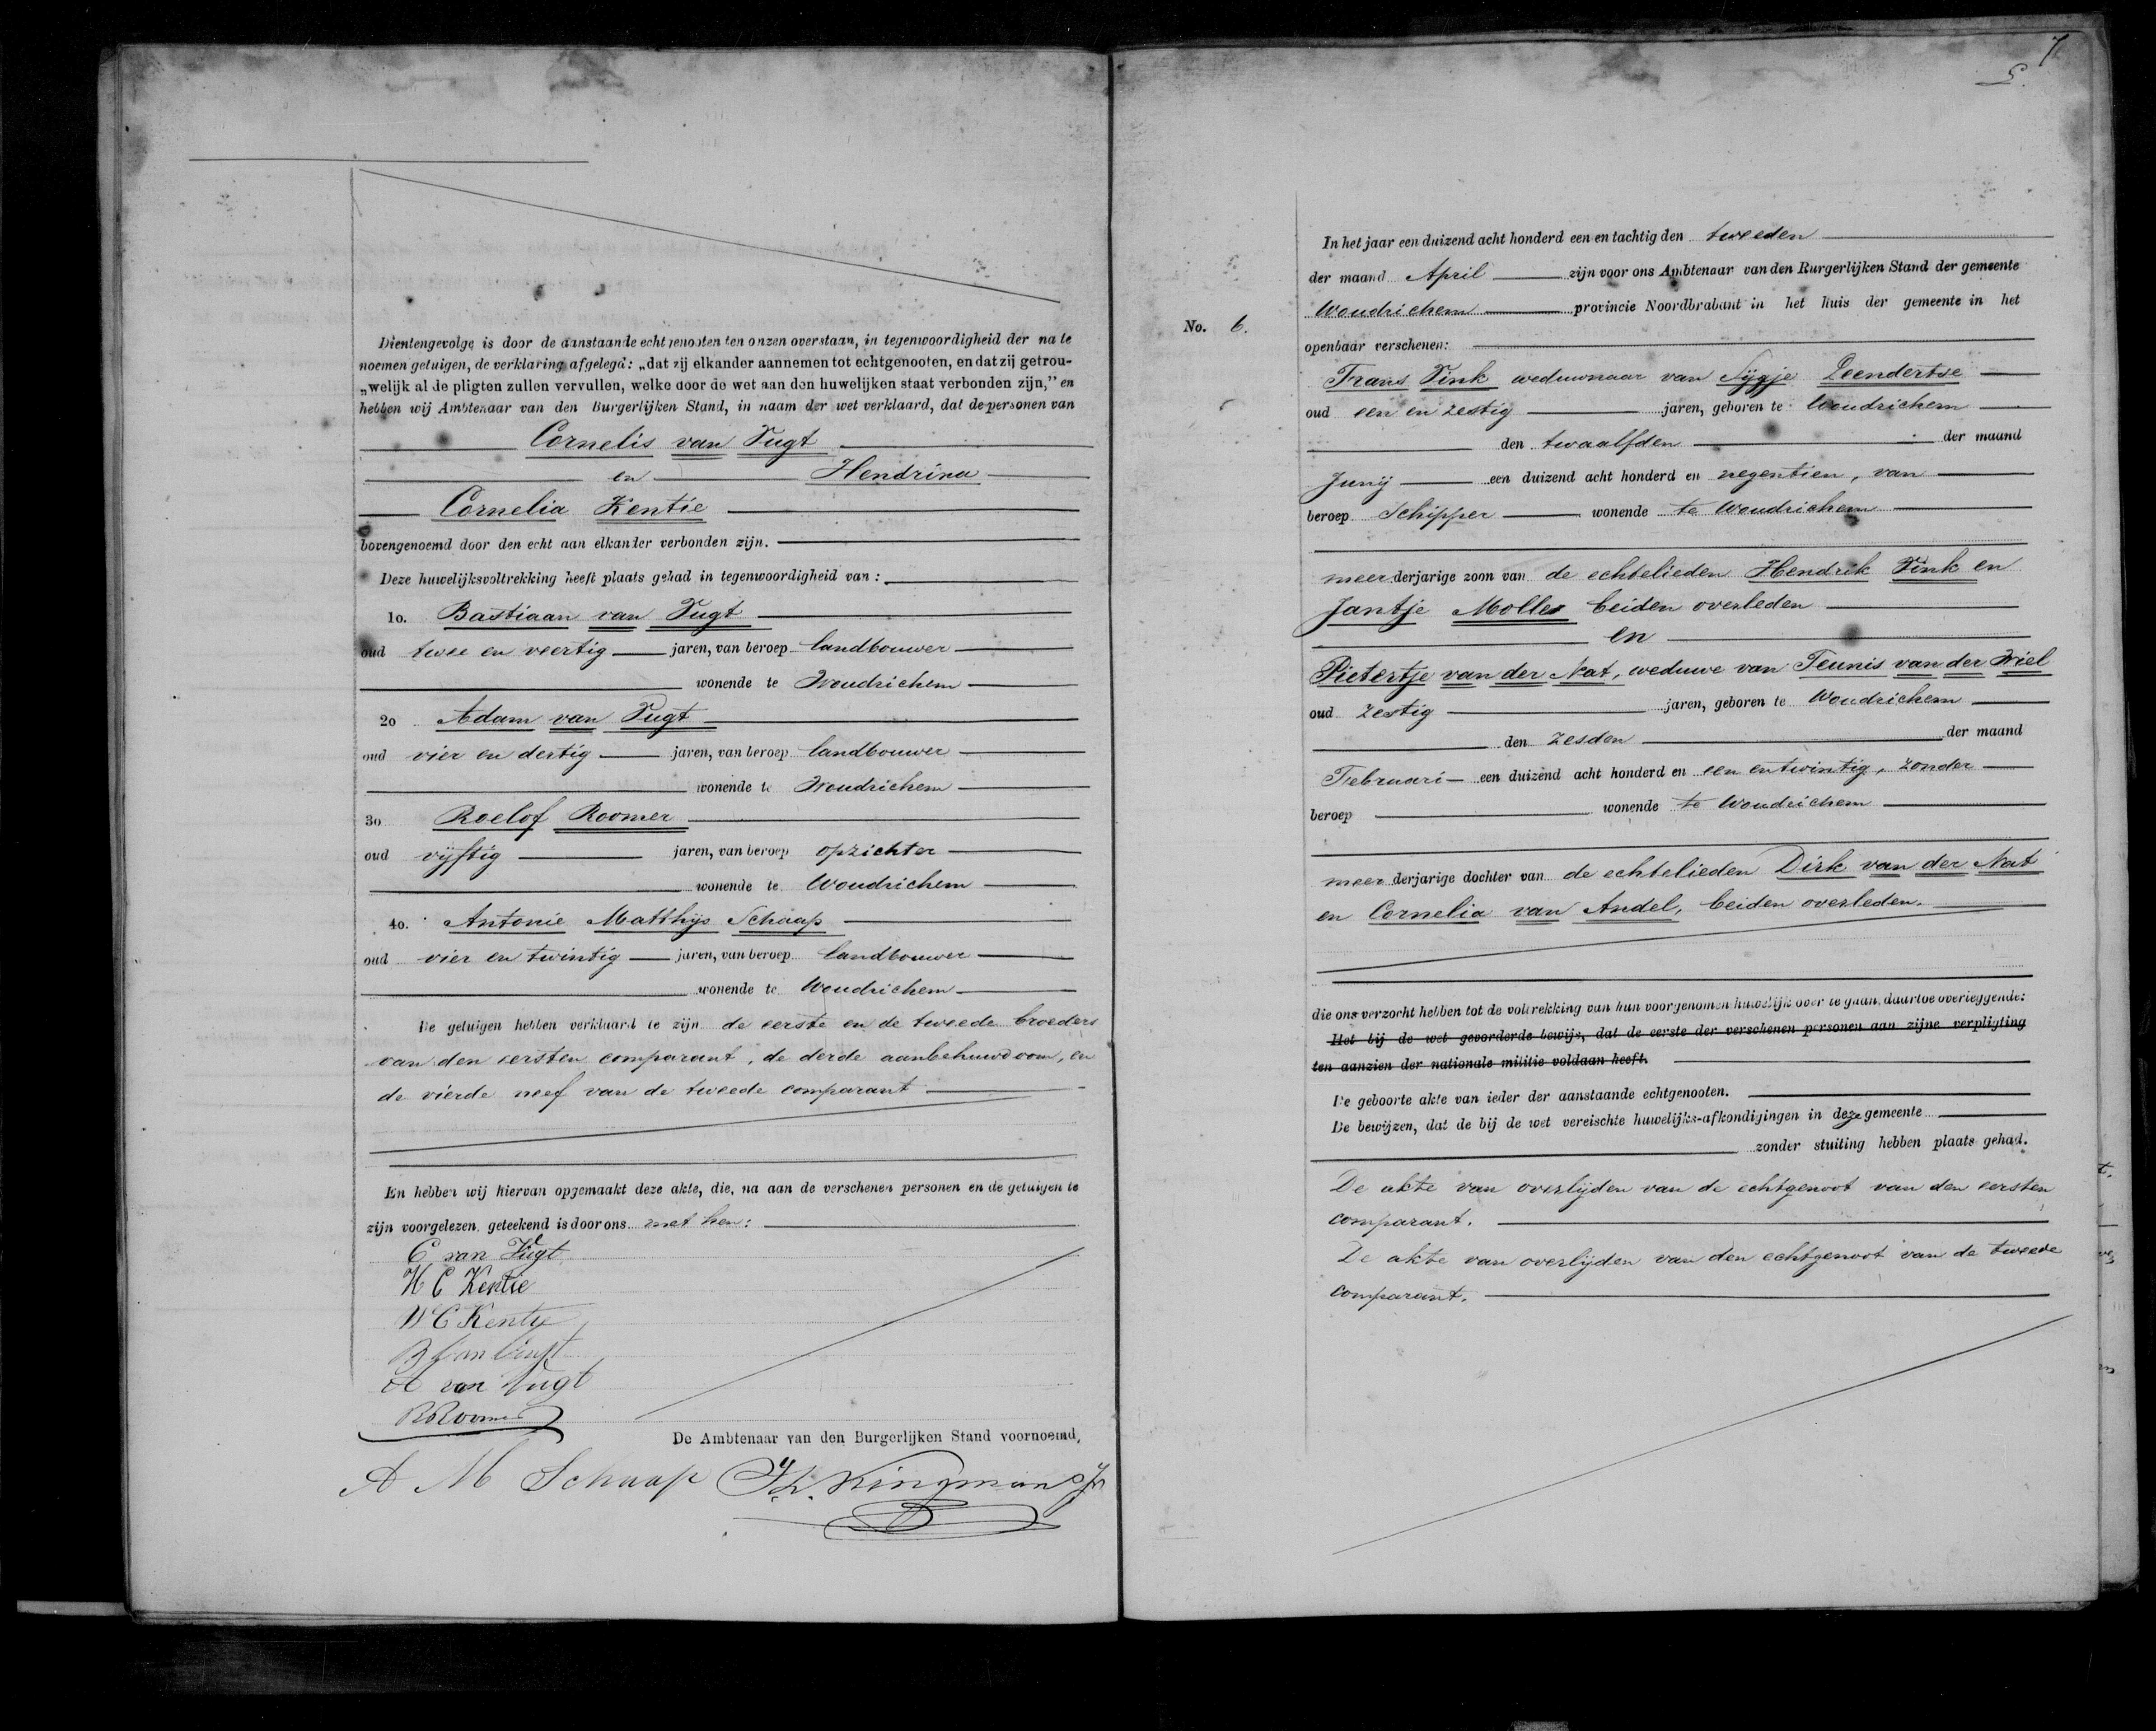 Dientengevolge is door de aanstaande echtgenooten ten onzen overstaan, in tegenwoordigheid der na te
noemen getuigen, de verklaring afgelegd: „dat zij elkander aannemen tot echtgenooten, en dat zij getrou-
„welijk al de pligten zullen vervullen, welke door de wet aan den huwelijken staat verbonden zijn,” en
hebben wij Ambtenaar van den Burgerlijken Stand, in naam der wet verklaard, dat de personen van
Cornelis van Vugt
en Hendrina
Cornelia Kentie
bovengenoemd door den echt aan elkander verbonden zijn.
Deze huwelijksvoltrekking heeft plaats gehad in tegenwoordigheid van:
1o. Bastiaan van Vugt
oud twee en veertig jaren, van beroep landbouwer
wonende te Woudrichem
2o Adam van Vugt
oud vier en dertig jaren, van beroep landbouwer
wonende te Woudrichem
3o Roelof Roomer
oud vijftig jaren, van beroep opzichter
wonende te Woudrichem
4o. Antonie Matthijs Schaap
oud vier en twintig jaren, van beroep landbouwer
wonende te Woudrichem
De getuigen hebben verklaard te zijn de eerste en de tweede broeders
van den eersten comparant, de derde aanbehuwdoom, en
de vierde neef van de tweede comparant
En hebben wij hiervan opgemaakt deze akte, die, na aan de verschenen personen en de getuigen te
zijn voorgelezen, geteekend is door ons met hen:
C van Vugt
H C Kentie
W C Kentie
B van Vugt
A van Vugt
R Roomer
De Ambtenaar van den Burgerlijken Stand voornoemd,
A M Schaap Th. Kingmans Jr
7
No. 6.
In het jaar een duizend acht honderd een en tachtig den tweeden
der maand April zijn voor ons Ambtenaar van den Burgerlijken Stand der gemeente
Woudrichem provincie Noordbrabant in het huis der gemeente in het
openbaar verschenen:
Frans Vink weduwnaar van Sijgje Leendertse
oud een en zestig jaren, geboren te Woudrichem
den twaalfden der maand
Junij een duizend acht honderd en negentien, van
beroep Schipper wonende te Woudrichem
meerderjarige zoon van de echtelieden Hendrik Vink en
Jantje Molle beiden overleden
en
Pietertje van der Nat, weduwe van Teunis van der Wiel
oud zestig jaren, geboren te Woudrichem
den zesden der maand
Februari een duizend acht honderd en een en twintig, zonder
beroep wonende te Woudrichem
meerderjarige dochter van de echtelieden Dirk van der Nat
en Cornelia van Andel, beiden overleden.
die ons verzocht hebben tot de voltrekking van hun voorgenomen huwelijk over te gaan, daartoe overleggende:
Het bij de wet gevorderde bewijs, dat de eerste der verschenen personen aan zijne verpligting
ten aanzien der nationale militie voldaan heeft.
De geboorte akte van ieder der aanstaande echtgenooten.
De bewijzen, dat de bij de wet vereischte huwelijks-afkondigingen in deze gemeente
zonder stuiting hebben plaats gehad.
De akte van overlijden van de echtgenoot van den eersten
comparant.
De akte van overlijden van den echtgenoot van de tweede
comparant.